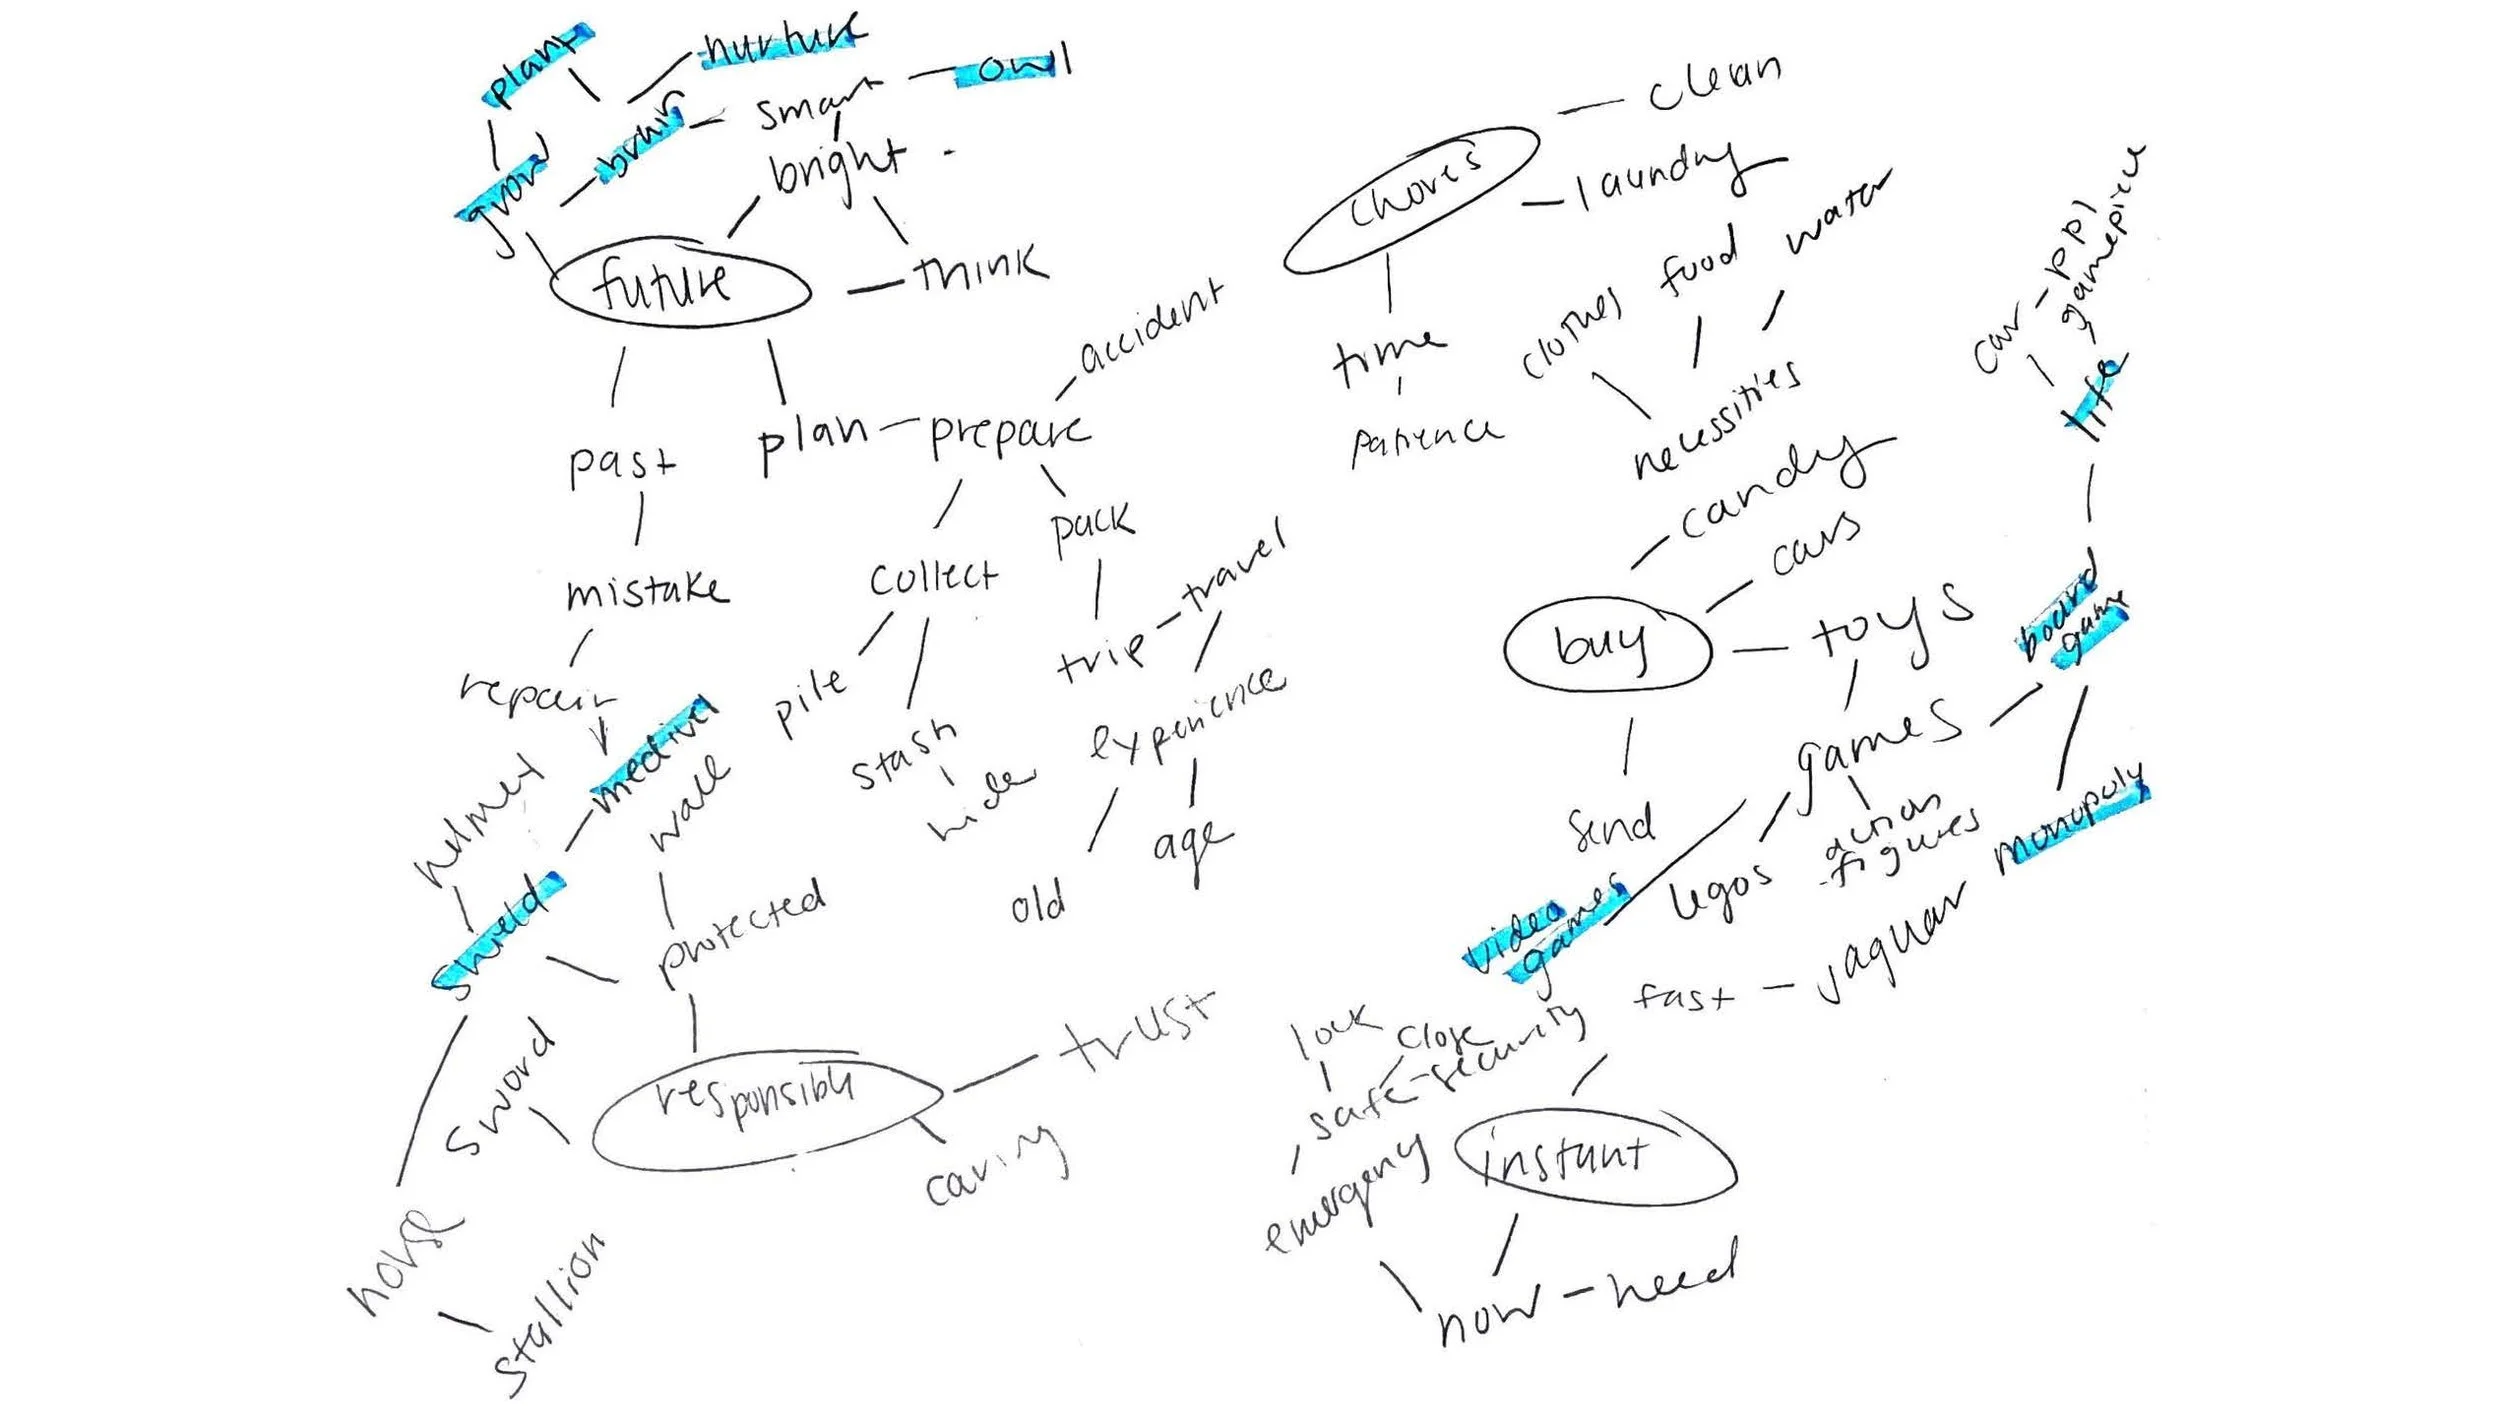 plant
nurture
owl
smart
brain
grow
bright
future
think
past
plan
prepare
accident
pack
mistake
collect
trip
travel
repair
pile
stash
hide
experience
age
old
medival
wall
helmet
shield
protected
sword
responsible
trust
caring
horse
stallion
chores
clean
laundry
time
patience
clothes
food
water
necessities
candy
cars
buy
toys
games
board
game
life
car
ppl
gamepiece
monopoly
send
legos
action
figures
video
games
jaguar
fast
lock
close
safe
security
emergency
instant
now
need